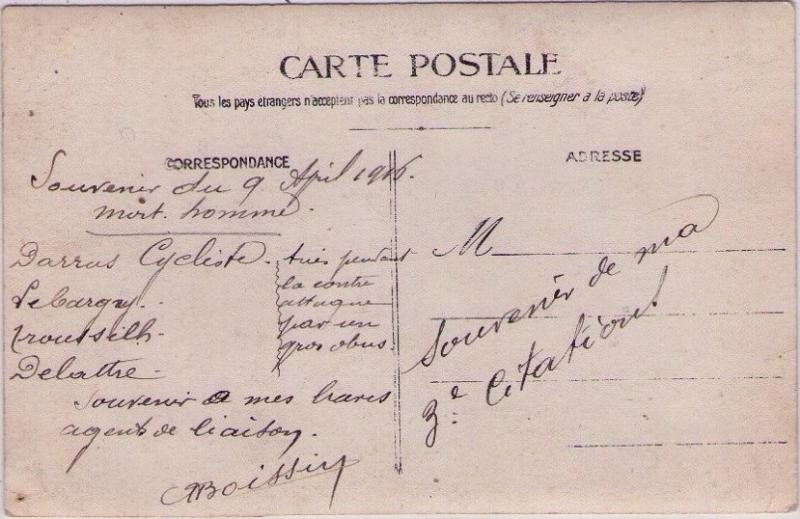 CARTE POSTALE
Tous les pays etrangers n'acceptent pas la correspondance au recto (Se renseigner a la poste)
CORRESPONDANCE
Souvenir du 9 April 1916.
mort. homme.
Darras Cycliste.
Lebargy.
Delattre.
tués pendant
la contre
attaque
par un
gros obus.
Souvenir a mes braves
agents de liaison.
Boissiy
ADRESSE
M
Souvenir de ma
3e Citation!